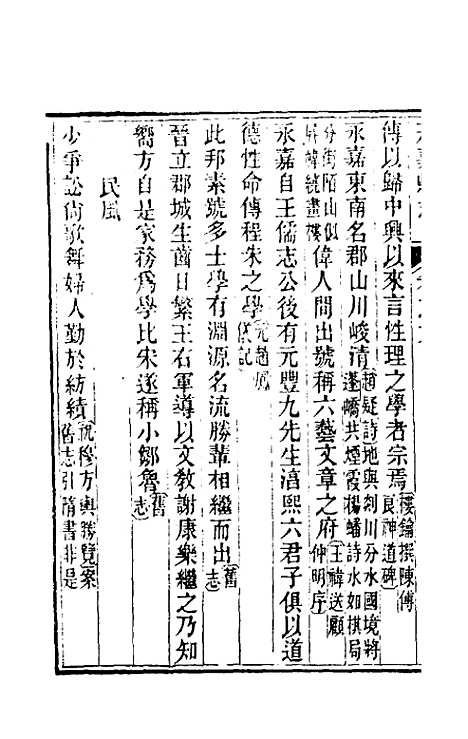 傳以歸中興以來言性理之學者宗焉樓鑰撰陳傅良神道碑
永嘉東南名郡山川峻清趙疑詩地與剡川分水國境將蓬嶠共煙霞楊蟠詩水如棋局
分街陌山似屏幃繞畫樓偉人間出號稱六藝文章之府王禕送顧仲明序
永嘉自王儒志公後有元豐九先生淳熙六君子俱以道
德性命傳程朱之學
此邦素號多士學有淵源名流勝輩相繼而出舊志
晉立郡城生齒日繁王右軍導以文教謝康樂繼之乃知
嚮方自是家務為學比宋遂稱小鄒魯舊志
民風
少爭訟尚歌舞婦人勤於紡績祝穆方輿勝覽案舊志引隋書非是